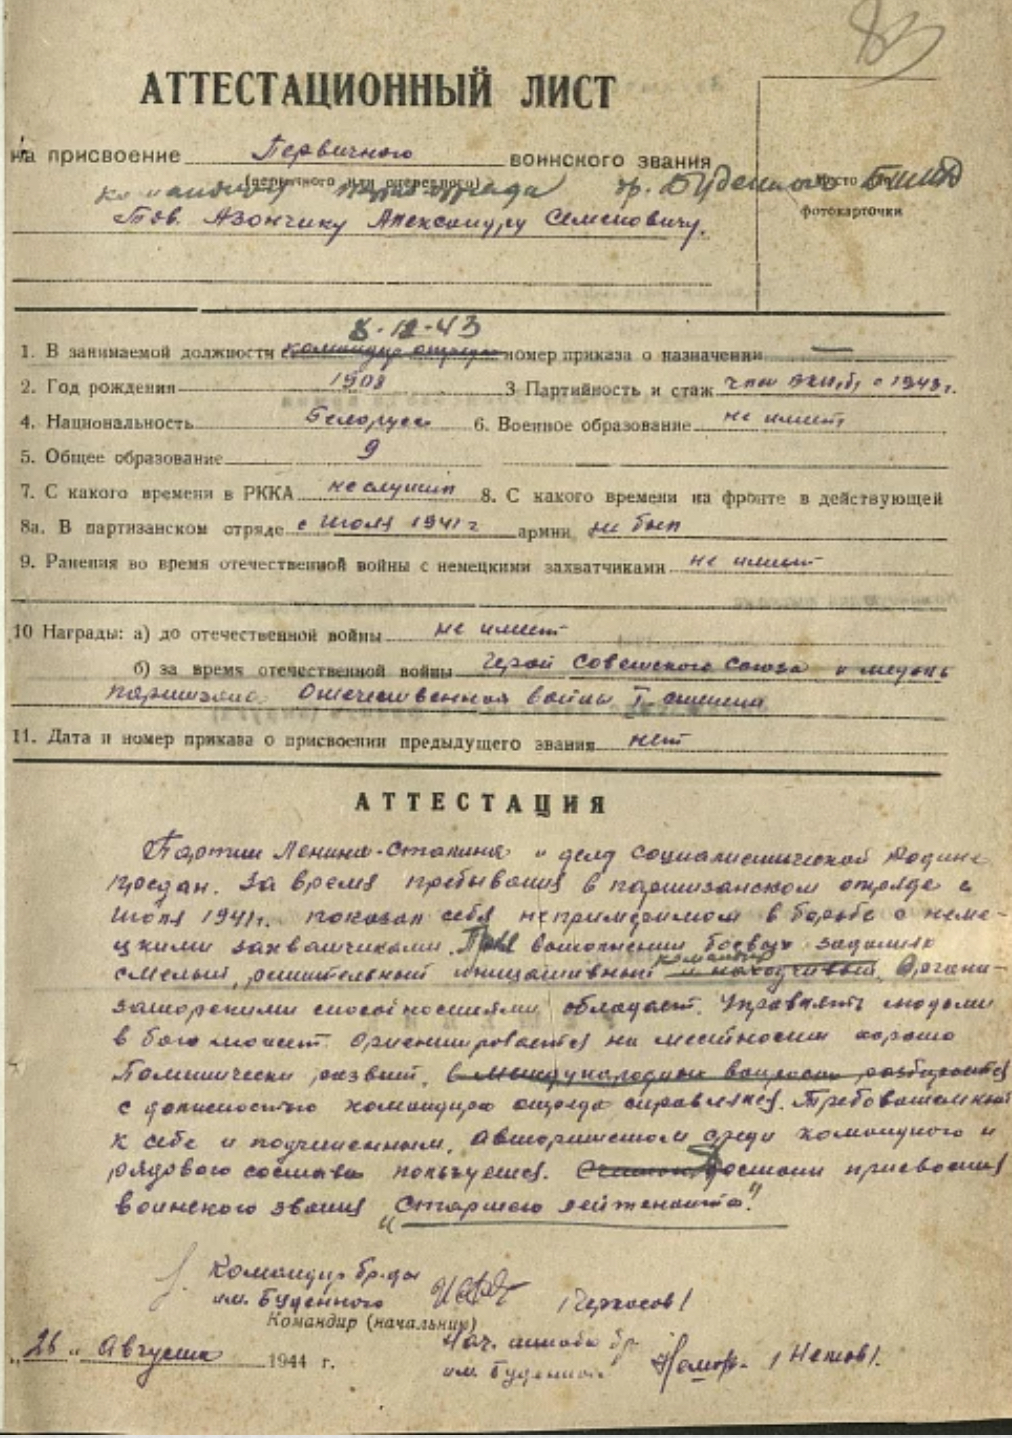 83
АТТЕСТАЦИОННЫЙ ЛИСТ
на присвоение Первичного воинского звания
(первичного или очередного)
командиру партотряда бр. Буденного БШПД
Место для
фотокарточки
Тов. Азончику Александру Семеновичу.
8-12-43
1. В занимаемой должности командир отряда номер приказа о назначении —
2. Год рождения 1908 3 Партийность и стаж член ВКП(б) с 1943 г.
4. Национальность Белорус 6. Военное образование не имеет
5. Общее образование 9
7. С какого времени в РККА не служил 8. С какого времени на фронте в действующей
8а. В партизанском отряде с Июля 1941 г армии не был
9. Ранения во время отечественной войны с немецкими захватчиками не имеет
10 Награды: а) до отечественной войны не имеет
б) за время отечественной войны Герой Советского Союза и медаль
партизана Отечественная войны I степени
11. Дата и номер приказа о присвоении предыдущего звания нет
АТТЕСТАЦИЯ
Партии Ленина-Сталина и делу социалистической Родине
предан. За время пребывания в партизанском отряде с
Июля 1941г. показал себя непримиримом в борьбе с неме-
цкими захватчиками. При выполнении боевых заданиях
смелый, решительный инициативный командир и находчивый. Органи-
заторскими способностями обладает. Управлять людьми
в бою может. Ориентировается на местности хорошо
Политически развит, в международных вопросах разбирается
с должностью командира отряда справлялся. Требовательный
к себе и подчиненным. Авторитетом среди командного и
рядового состава пользуется. Достоин присвоения
воинского звания „Старшего лейтенанта".
Командир бр-ды
им. Буденного
Командир (начальник)
Нач. штаба бр.
им. Буденного
/ Нетов /.
„26„ Августа 1944 г.